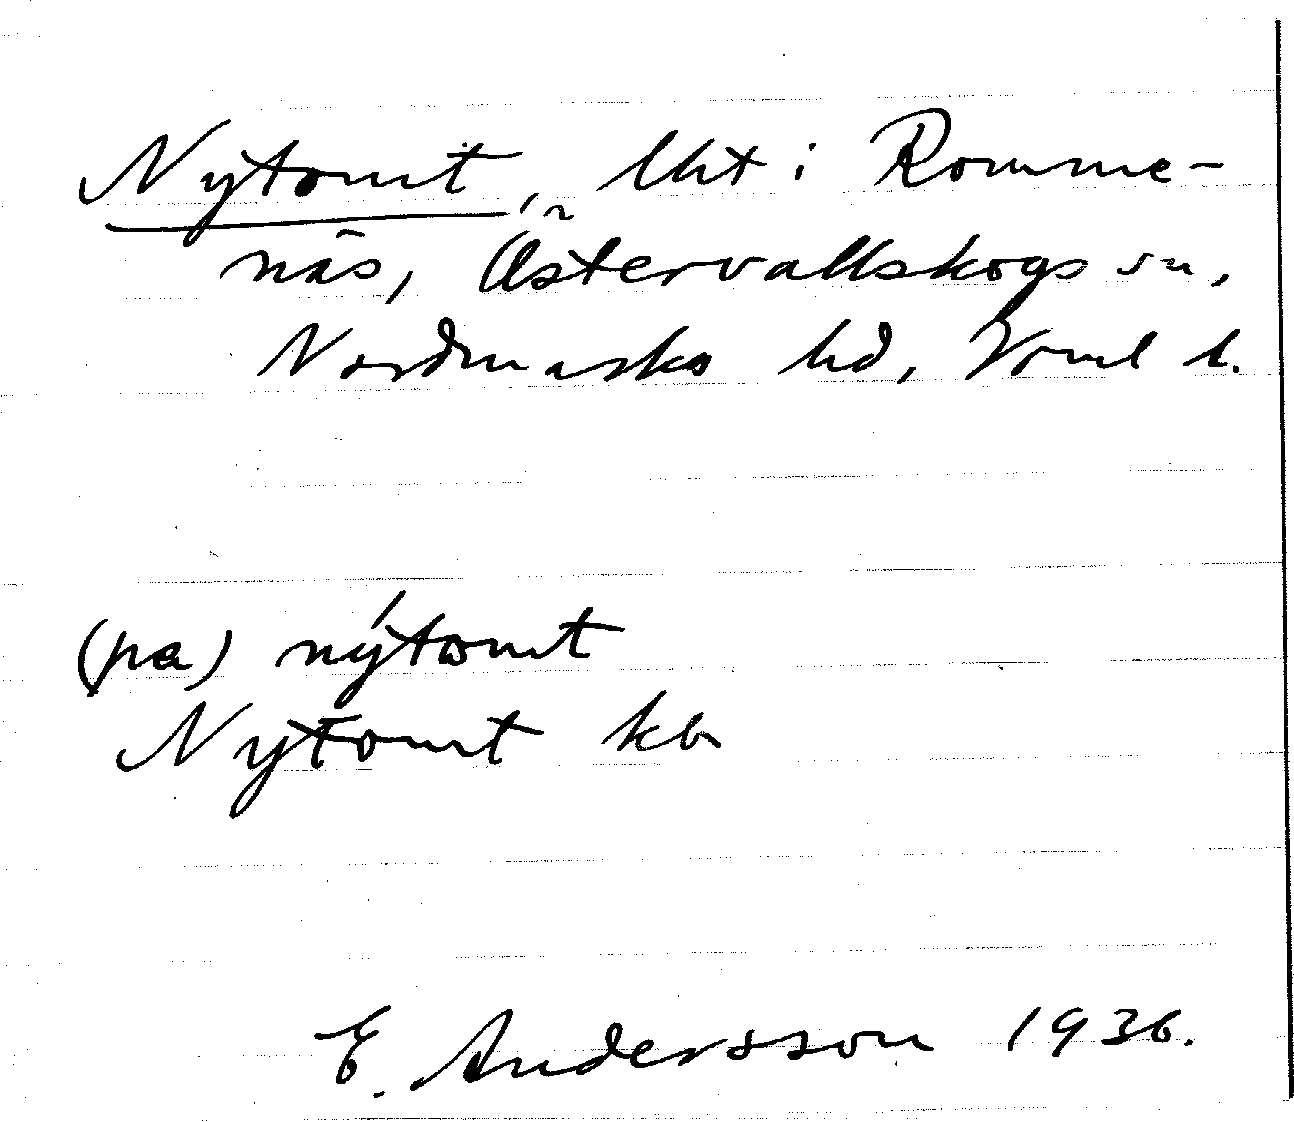 Nytomt, lht i Romme-
näs, Östervallskogs sn,
Nordmarks hd, Vrml l.
(på) nýtomt
Nytomt kb
E. Andersson 1936.